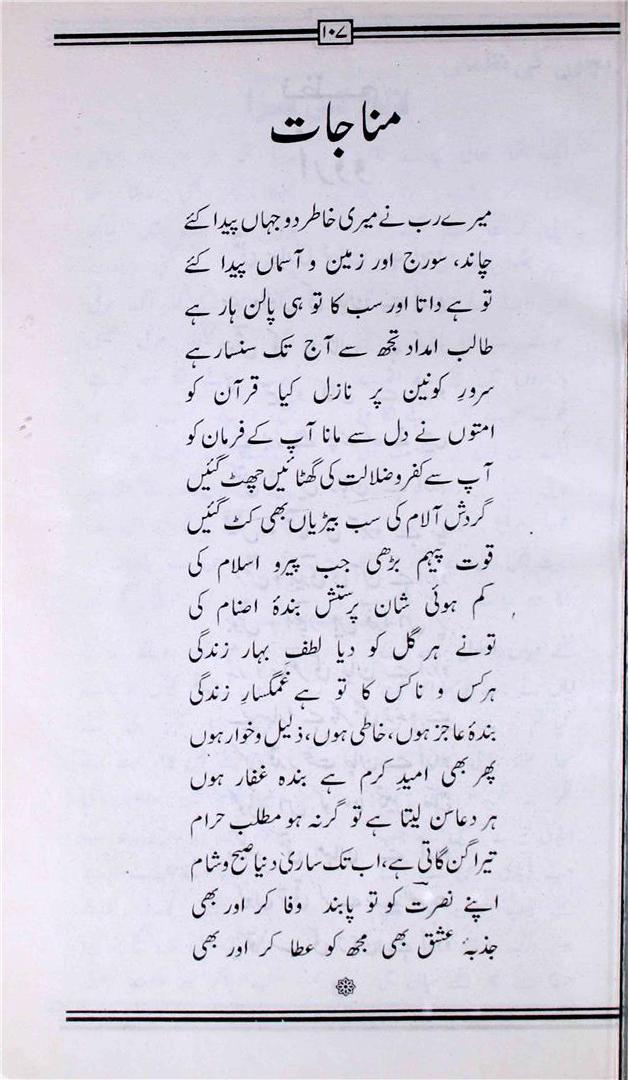 ۱۰۷
مناجات
میرے رب نے میری خاطر دو جہاں پیدا کئے
چاند، سورج اور زمین و آسماں پیدا کئے
تو ہے داتا اور سب کا تو ہی پالن ہار ہے
طالب امداد تجھ سے آج تک سنسار ہے
سرورِ کونین پر نازل کیا قرآن کو
امتوں نے دل سے مانا آپ کے فرمان کو
آپ سے کفر و ضلالت کی گھٹائیں چھٹ گئیں
گردش آلام کی سب بیڑیاں بھی کٹ گئیں
قوت پیہم بڑھی جب پیرو اسلام کی
کم ہوئی شان پرستش بندۂ اصنام کی
تونے ہر گل کو دیا لطف بہار زندگی
ہرکس و ناکس کا تو ہے غمگسارِ زندگی
بندۂ عاجز ہوں، خاطی ہوں، ذلیل و خوار ہوں
پھر بھی امیدِ کرم ہے بندہ غفار ہوں
ہر دعا سن لیتا ہے تو گر نہ ہو مطلب حرام
تیرا گن گاتی ہے، اب تک ساری دنیا صبح و شام
اپنے نصرتؔ کو تو پابند وفا کر اور بھی
جذبۂ عشق بھی مجھ کو عطا کر اور بھی